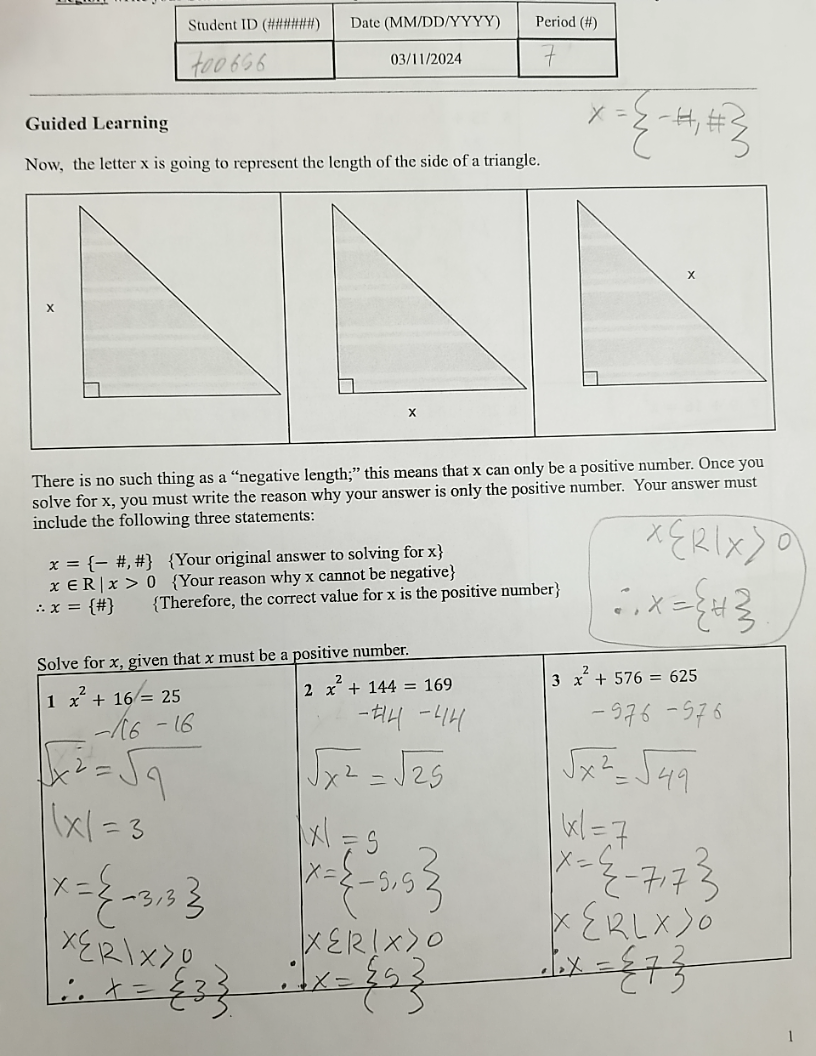 Student ID (######) Date (MM/DD/YYYY) Period (#)
700656 03/11/2024 7
Guided Learning
x = {-#, #}
Now, the letter x is going to represent the length of the side of a triangle.
x
x
x
There is no such thing as a “negative length;” this means that x can only be a positive number. Once you
solve for x, you must write the reason why your answer is only the positive number. Your answer must
include the following three statements:
x = {− #, #} {Your original answer to solving for x}
x ∈ R | x > 0 {Your reason why x cannot be negative}
∴ x = {#} {Therefore, the correct value for x is the positive number}
x ∈ R | x > 0
∴ x = {#}
Solve for x, given that x must be a positive number.
1 x² + 16 = 25
-16 -16
√x² = √9
|x| = 3
x = {-3,3}
x ∈ R | x > 0
∴ x = {3}
2 x² + 144 = 169
-144 -144
√x² = √25
|x| = 5
x = {-5,5}
x ∈ R | x > 0
∴ x = {5}
3 x² + 576 = 625
-576 -576
√x² = √49
|x| = 7
x = {-7,7}
x ∈ R | x > 0
∴ x = {7}
1